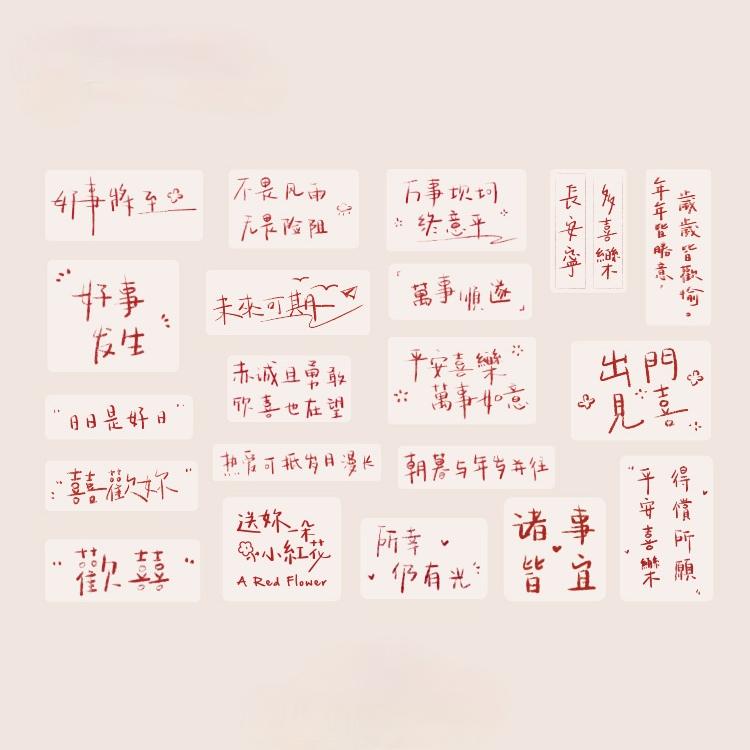 好事將至
不畏风雨
无畏险阻
万事坎坷
终意平
多喜樂
長安寧
歲歲皆歡愉。
年年皆勝意，
好事
发生
未來可期
萬事順遂
赤诚且勇敢
欣喜也在望
平安喜樂
萬事如意
出門
見喜
日日是好日
囍歡妳
热爱可抵岁月漫长
朝暮与年岁并往
得償所願
平安喜樂
歡囍
送妳一朵
小紅花
A Red Flower
所幸
仍有光
诸事
皆宜